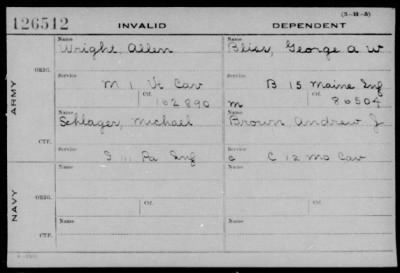 126512 INVALID DEPENDENT (3-18-5)
Name Name
Wright, Allen Bliss, George A W
ORIG.
Service Service
M 1 Vt Cav B 15 Maine Inf
Ctf. Ctf.
102890 m 80504
ARMY
Name Name
Schlager, Michael Brown Andrew J
CTF.
Service Service
I 111 Pa Inf c C 12 Mo Cav
Name Name
ORIG.
Service Service
Ctf. Ctf.
NAVY
Name Name
CTF.
Service Service